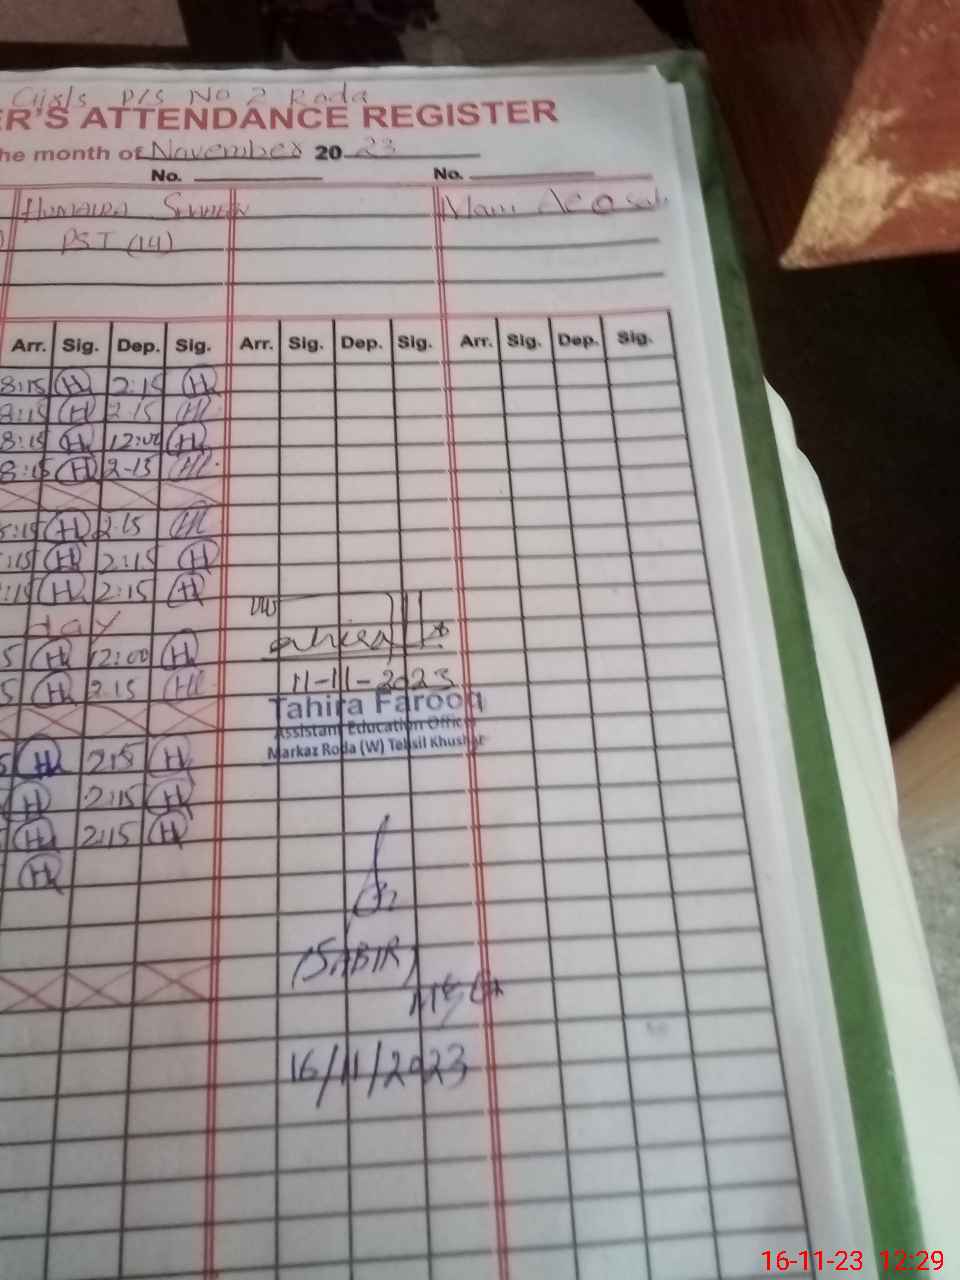 Girls P/S No 2 Roda
ER'S ATTENDANCE REGISTER
he month of November 20 23
No. No.
HUMAIRA
PST (14)
Arr. Sig. Dep. Sig. Arr. Sig. Dep. Sig. Arr. Sig. Dep. Sig.
8:15 H 2:15 H
8:15 H 2.15 H
8:15 H 12:00 H
8:15 H 2-15 H
:15 H 2.15 H
:15 H 2:15 H
:15 H 2:15 H
day
5 H 12:00 H
5 H 2.15 H
11-11-2023
Tahira Farooq
Assistant Education Officer
Markaz Roda (W) Tehsil Khushab
H 2:15 H
H 2:15 H
H 2:15 H
H
(SABIR)
16/11/2023
16-11-23 12:29